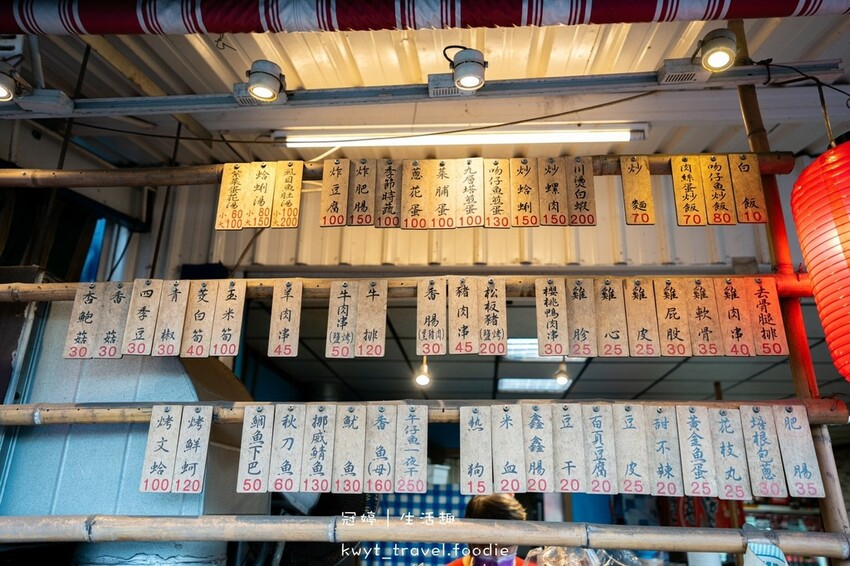 紫菜蛋花湯 小60 大100
蛤蜊湯 小80 大150
虱目魚肚湯 小100 大200
炸豆腐 100
炸肥腸 150
季節時蔬 100
蔥花蛋 100
菜脯蛋 100
九層塔煎蛋 100
吻仔魚煎蛋 130
炒蛤蜊 150
炒螺肉 150
川燙白蝦 200
炒麵 70
肉絲蛋炒飯 70
吻仔魚炒飯 80
白飯 10
杏鮑菇 30
香菇 30
四季豆 30
青椒 30
茭白筍 40
玉米筍 100
羊肉串 45
牛肉串(鹽烤) 50
牛排 120
香腸(黑豬肉) 30
豬肉串 45
松板豬(鹽烤) 100
櫻桃鴨肉串 30
雞胗 25
雞心 25
雞皮 25
雞屁股 30
雞軟骨 35
雞肉串 40
去骨腿排 50
烤文蛤 100
烤鮮蚵 120
鯛魚下巴 50
秋刀魚 60
挪威鯖魚 130
魷魚 130
香魚(母) 160
午仔魚一夜干 250
熱狗 15
米血 20
鑫鑫腸 20
豆干 20
百頁豆腐 20
豆皮 20
甜不辣 20
黃金魚蛋 25
花枝丸 25
培根包蔥 30
肥腸 35
冠婷｜生活趣
kwyt_travel.foodie